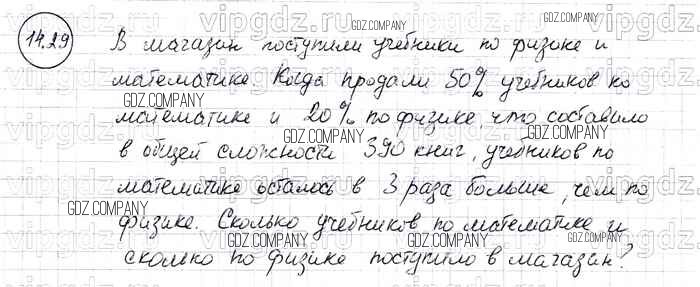 14.29
В магазин поступили учебники по физике и
математике. Когда продали 50% учебников по
математике и 20% по физике что составило
в общей сложности 390 книг, учебников по
математике осталось в 3 раза больше, чем по
физике. Сколько учебников по математике и
сколько по физике поступило в магазин?
GDZ.COMPANY
vipgdz.ru